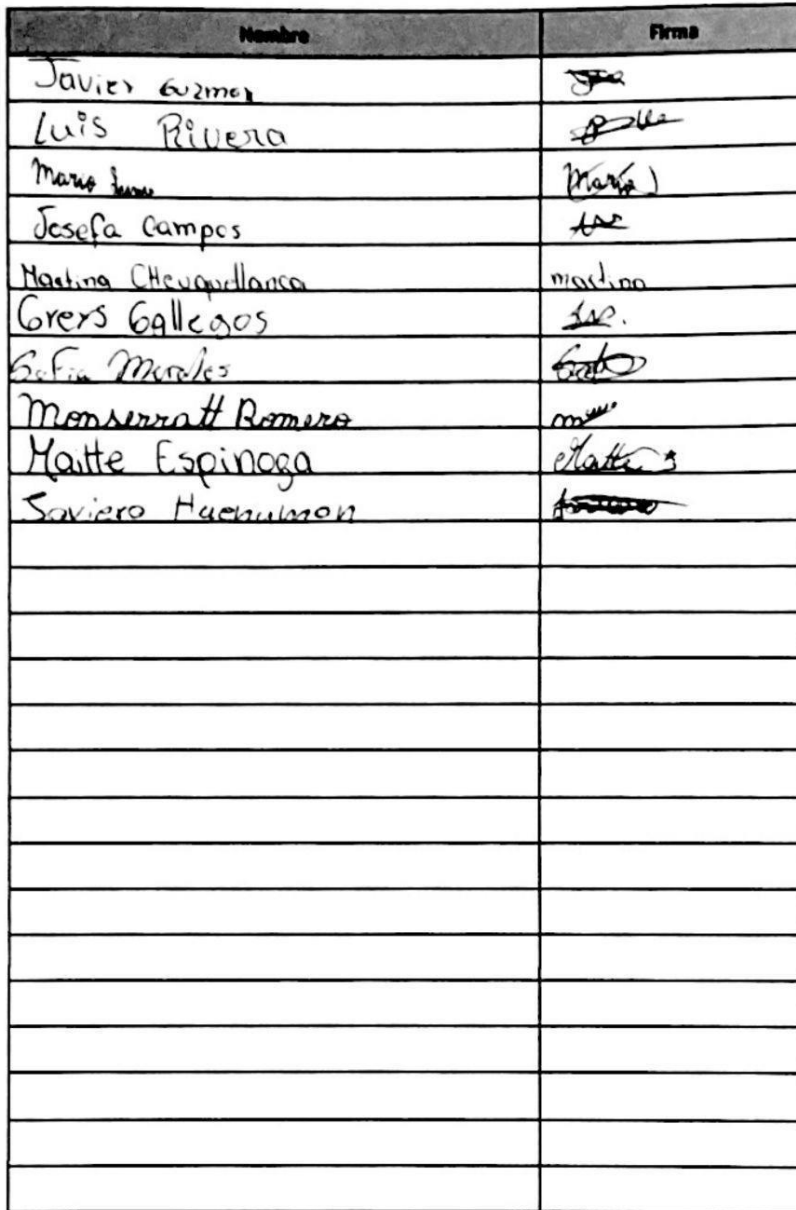 Nombre Firma
Javier Guzman
Luis Rivera
Mario Maria
Josefa Campos
Martina CHeuquellanca martina
Grers Gallegos
Sofia Morales
Monserratt Romero
Maitte Espinoza Maitte
Saviera Huenuman